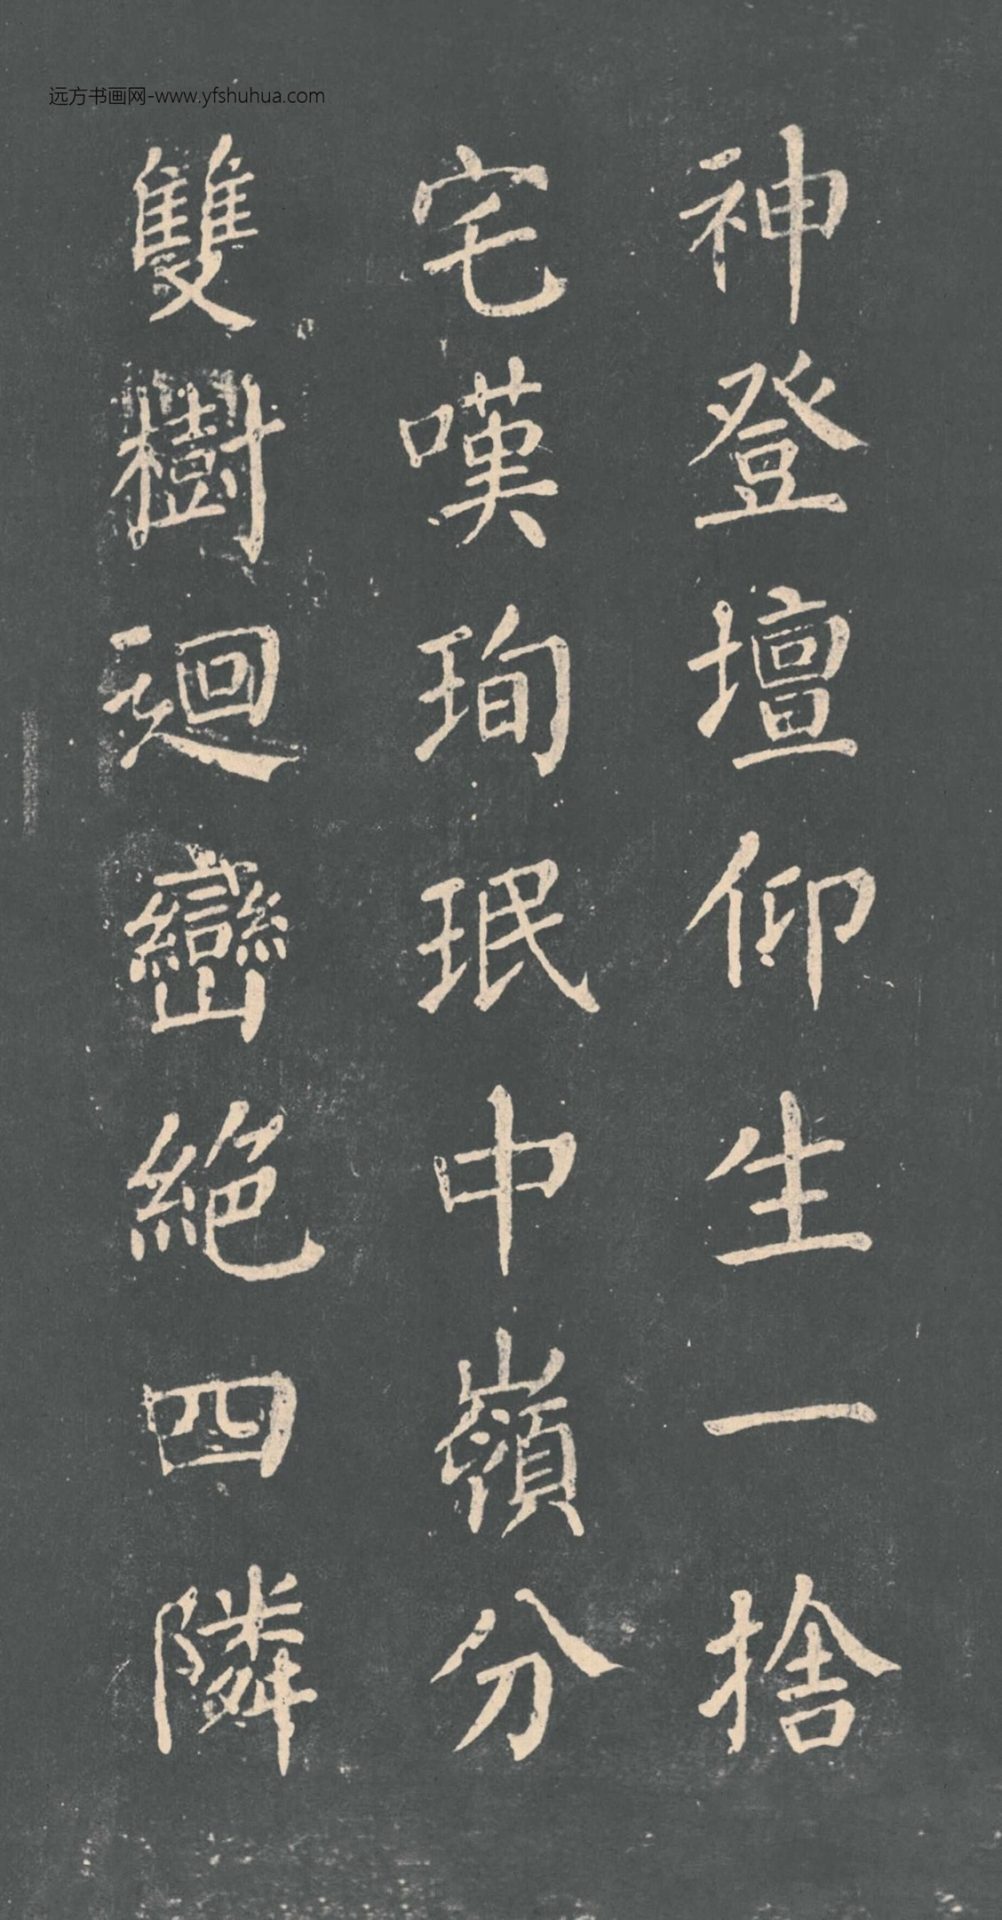 远方书画网-www.yfshuhua.com
神登壇仰生一捨
宅嘆珣珉中嶺分
雙樹迴巒絕四隣